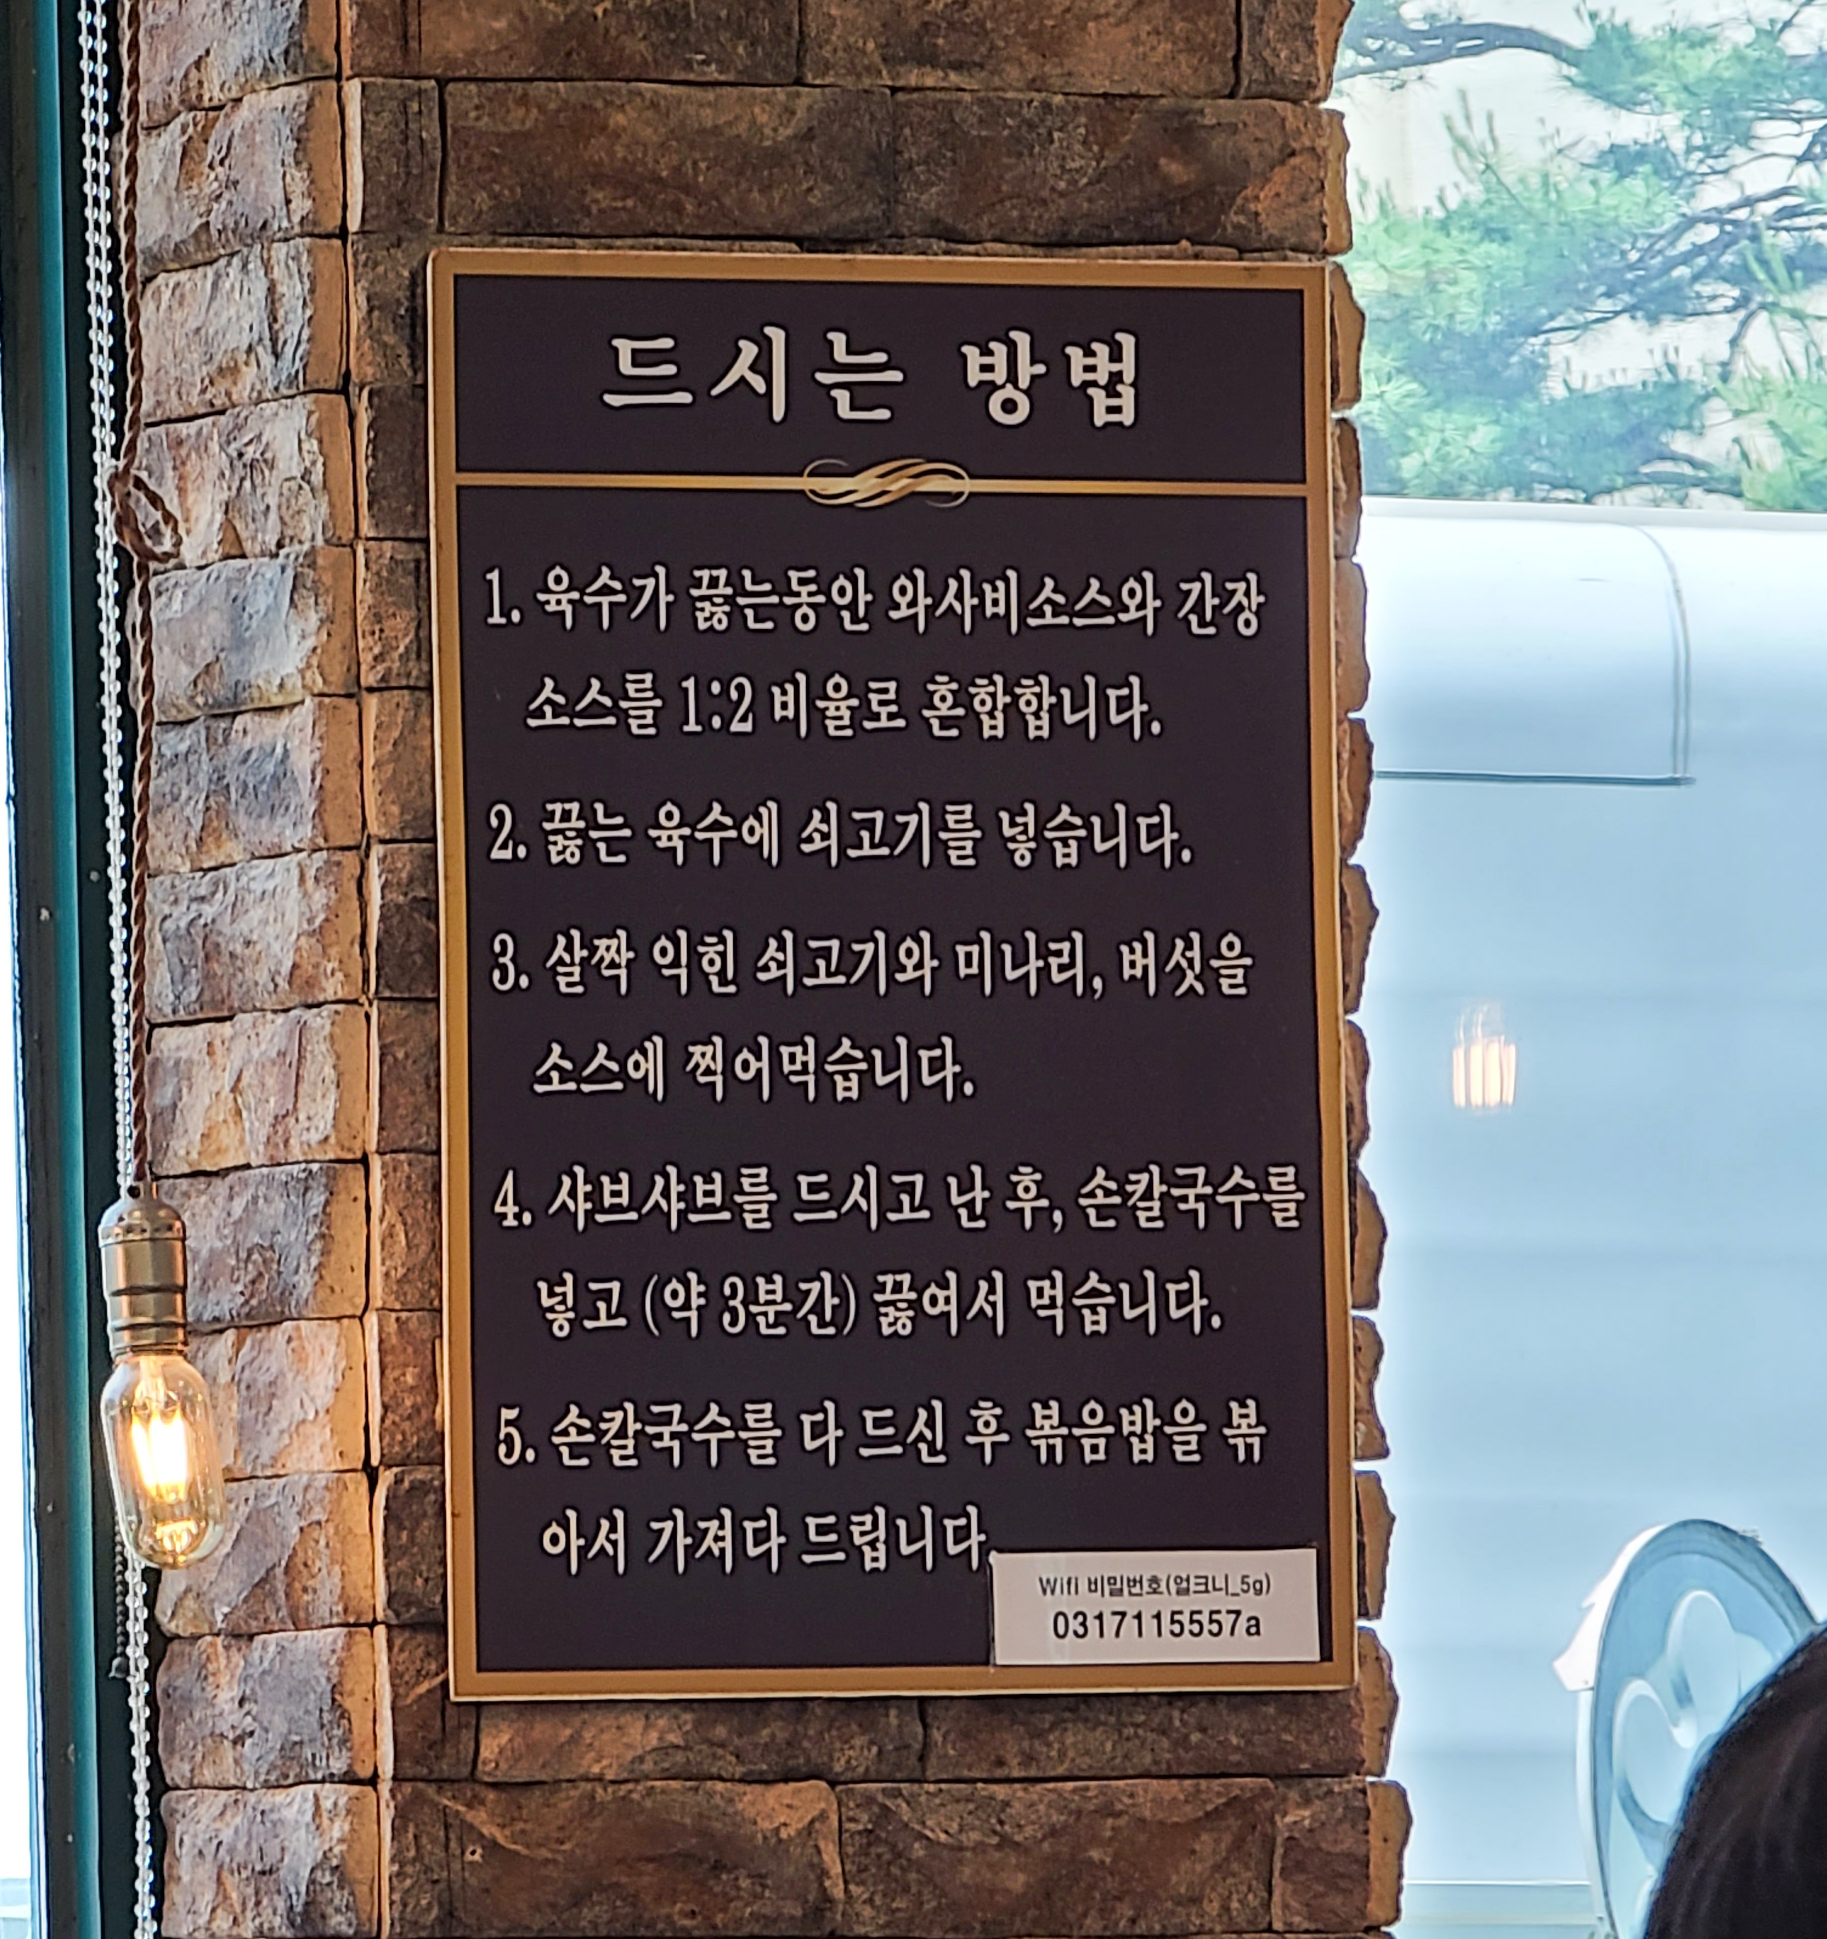 드시는 방법
1. 육수가 끓는동안 와사비소스와 간장
소스를 1:2 비율로 혼합합니다.
2. 끓는 육수에 쇠고기를 넣습니다.
3. 살짝 익힌 쇠고기와 미나리, 버섯을
소스에 찍어먹습니다.
4. 샤브샤브를 드시고 난 후, 손칼국수를
넣고 (약 3분간) 끓여서 먹습니다.
5. 손칼국수를 다 드신 후 볶음밥을 볶
아서 가져다 드립니다.
Wifi 비밀번호(얼크니_5g)
0317115557a